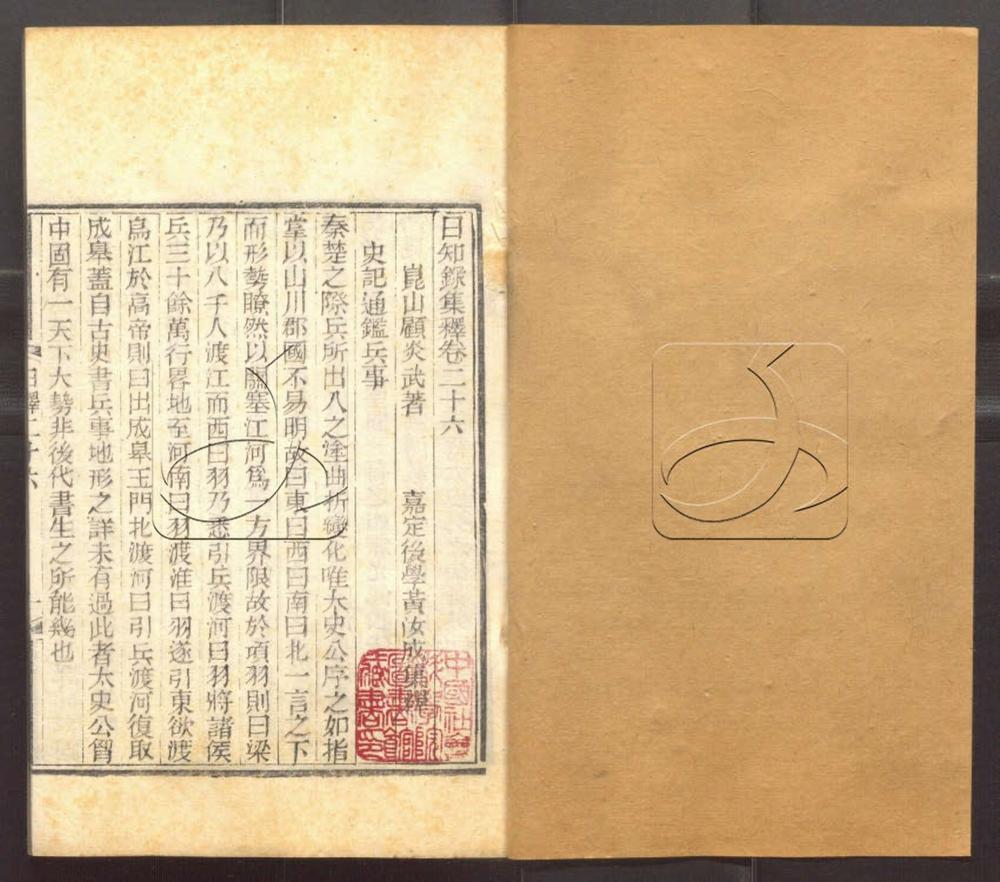 日知錄集釋卷二十六
崑山顧炎武著　嘉定後學黃汝成集釋
史記通鑑兵事
秦楚之際兵所出入之塗曲折變化唯太史公序之如指
掌以山川郡國不易明故曰東曰西曰南曰北一言之下
而形勢瞭然以關塞江河爲一方界限故於項羽則曰梁
乃以八千人渡江而西曰羽乃悉引兵渡河曰羽將諸侯
兵三十餘萬行畧地至河南曰羽渡淮曰羽遂引東欲渡
烏江於高帝則曰出成臯玉門北渡河曰引兵渡河復取
成臯蓋自古史書兵事地形之詳未有過此者太史公胷
中固有一天下大勢非後代書生之所能幾也
中國社會科學院
圖書館
藏書印